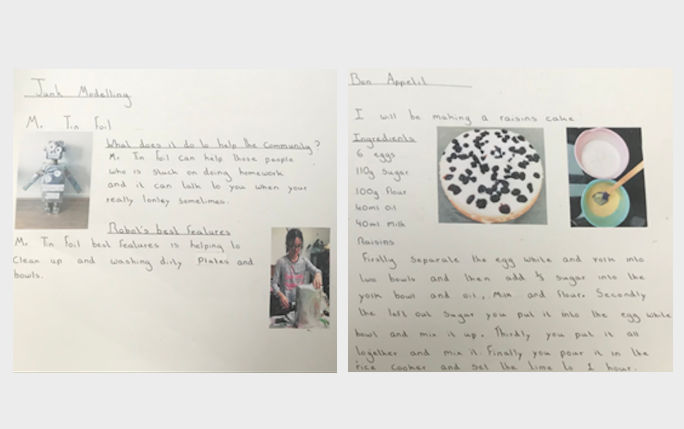 Junk Modelling
Mr Tin Foil
What does it do to help the community?
Mr Tin Foil can help those people
who is stuck on doing homework
and it can talk to you when your
really lonley sometimes.
Robot's best features
Mr Tin Foil best features is helping to
Clean up and washing dirty Plates and
bowls.
Bon Appetit
I will be making a raisins cake
Ingredients
6 eggs
110g Sugar
100g flour
40ml oil
40ml milk
Raisins
Firstly Separate the egg white and yolk into
two bowls and then add ⅓ sugar into the
yolk bowl and oil, Milk and flour. Secondly
the left out Sugar you put it into the egg white
bowl and mix it up. Thirdly you put it all
together and mix it. Finally you pour it in the
rice cooker and set the time to 1 hour.